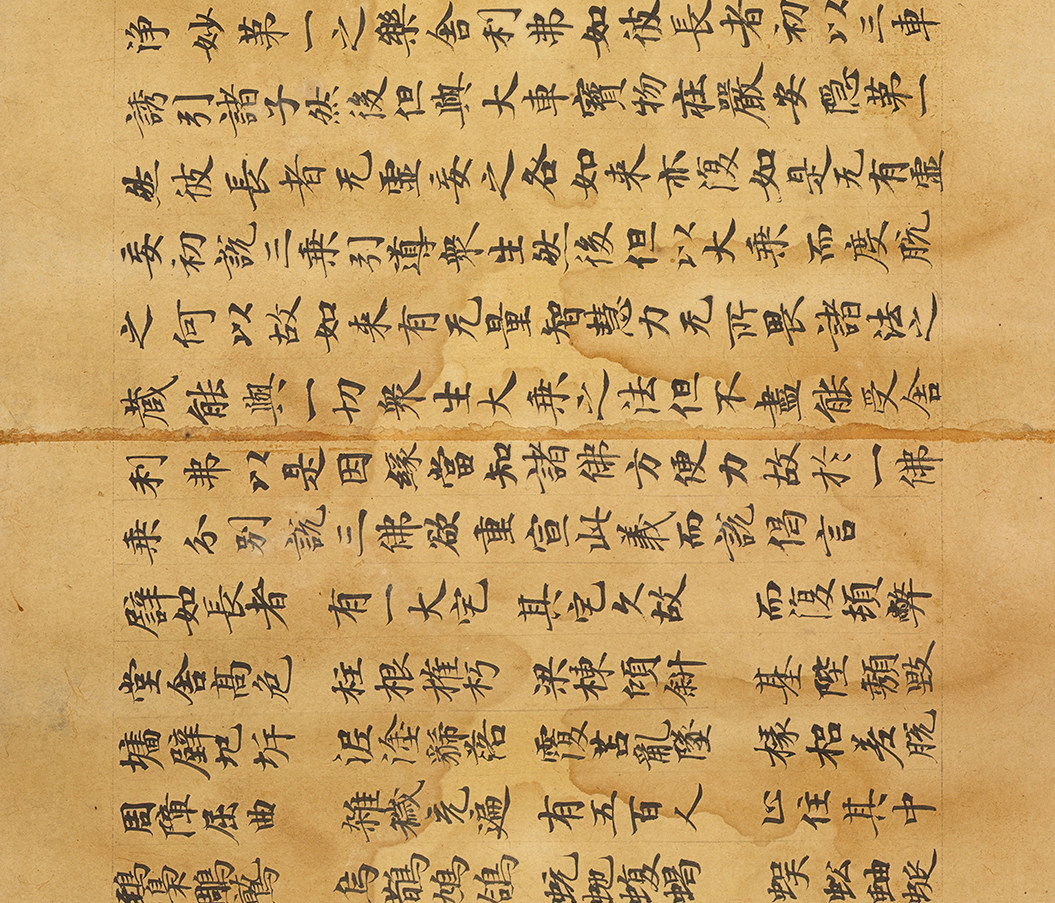 浄妙第一之樂舍利弗如彼長者初以三車
誘引諸子然後但與大車寶物莊嚴安隱第一
然彼長者无虛妄之咎如来亦復如是无有虛
妄初說三乗引導衆生然後但以大乗而度脫
之何以故如来有无量智慧力无所畏諸法之
蔵能與一切衆生大乗之法但不盡能受舍
利弗以是因緣當知諸佛方便力故於一佛
乗分別說三佛欲重宣此義而說偈言
譬如長者 有一大宅 其宅久故 而復頓弊
堂舍髙危 柱根摧朽 梁棟傾斜 基陛頹毀
墉壁圮坼 泥塗褫落 覆苫亂墜 椽梠差脫
周障屈曲 雜穢充遍 有五百人 止住其中
鵄梟鵰鷲 烏鵲鳩鴿 蚖虵蝮蝎 蜈蚣蚰蜒